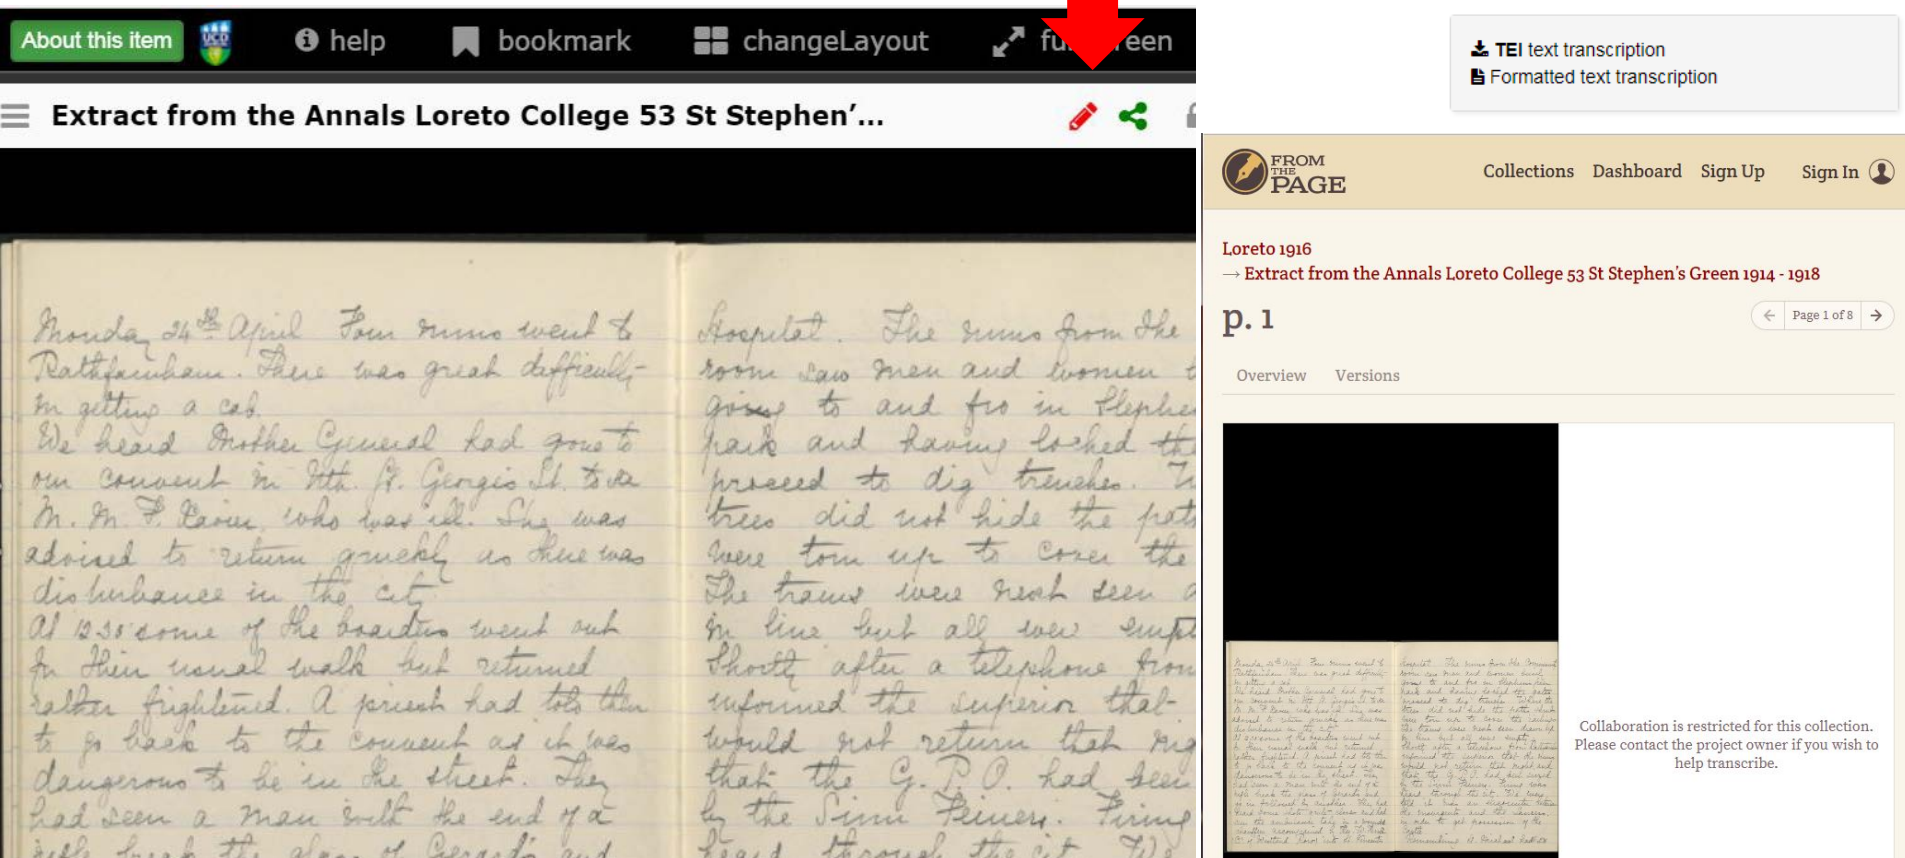 About this item
UCD
help
bookmark
changeLayout
fu een
Extract from the Annals Loreto College 53 St Stephen’...
Monday 24th April Four nuns went to
Rathfarnham. There was great difficulty
in getting a cab.
We heard Mother General had gone to
our convent in Nth. Gt. Georges St. to see
M. M. F. Xavier, who was ill. She was
advised to return quickly as there was
disturbance in the city
At 12.30 some of the boarders went out
for their usual walk but returned
rather frightened. A priest had told them
to go back to the convent as it was
dangerous to be in the street. They
had seen a man with the end of a
rifle break the glass of Gerard's and
Hospital. The nuns from the
room saw men and women
going to and fro in Stephe
park and having locked th
proceed to dig trenches.
trees did not hide the pat
were torn up to cover the
The trams were next seen
in line but all were empt
Shortly after a telephone from
informed the superior that
would not return that nig
that the G.P.O. had been
by the Sinn Feiners. Firing
heard through the city. We
TEI text transcription
Formatted text transcription
FROM
THE
PAGE
Collections Dashboard Sign Up Sign In
Loreto 1916
→ Extract from the Annals Loreto College 53 St Stephen's Green 1914 - 1918
p. 1
← Page 1 of 8 →
Overview Versions
Collaboration is restricted for this collection.
Please contact the project owner if you wish to
help transcribe.